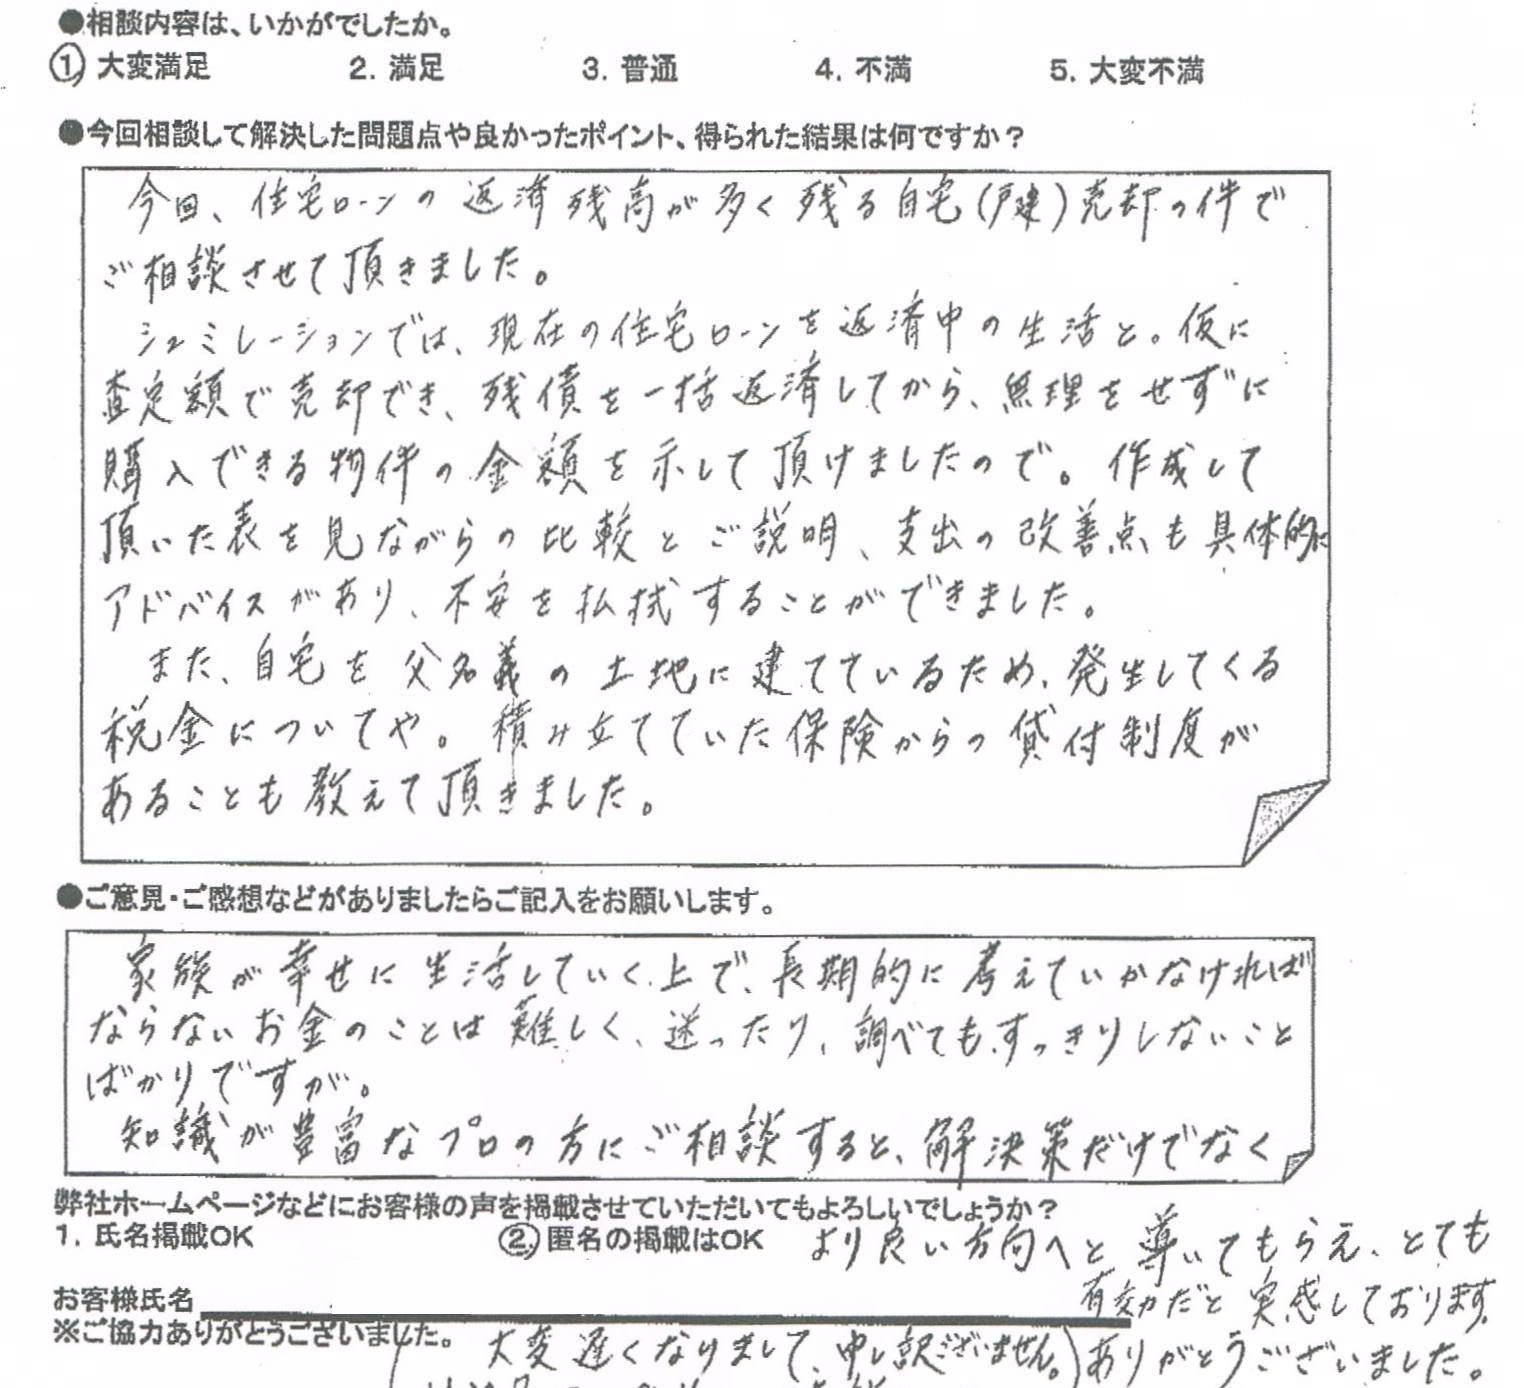 ●相談内容は、いかがでしたか。
① 大変満足 2. 満足 3. 普通 4. 不満 5. 大変不満
●今回相談して解決した問題点や良かったポイント、得られた結果は何ですか？
今回、住宅ローンの返済残高が多く残る自宅(戸建)売却の件で
ご相談させて頂きました。
シュミレーションでは、現在の住宅ローンを返済中の生活と。仮に
査定額で売却でき、残債を一括返済してから、無理をせずに
購入できる物件の金額を示して頂けましたので。作成して
頂いた表を見ながらの比較とご説明、支出の改善点も具体的に
アドバイスがあり、不安を払拭することができました。
また、自宅を父名義の土地に建てているため、発生してくる
税金についてや。積み立てていた保険からの貸付制度が
あることも教えて頂きました。
●ご意見・ご感想などがありましたらご記入をお願いします。
家族が幸せに生活していく上で、長期的に考えていかなければ
ならないお金のことは難しく、迷ったり、調べても、すっきりしないこと
ばかりですが。
知識が豊富なプロの方にご相談すると、解決策だけでなく
弊社ホームページなどにお客様の声を掲載させていただいてもよろしいでしょうか？
1. 氏名掲載OK ② 匿名の掲載はOK より良い方向へと導いてもらえ、とても
有効だと実感しております。
お客様氏名
※ご協力ありがとうございました。
(大変遅くなりまして、申し訳ございません。) ありがとうございました。